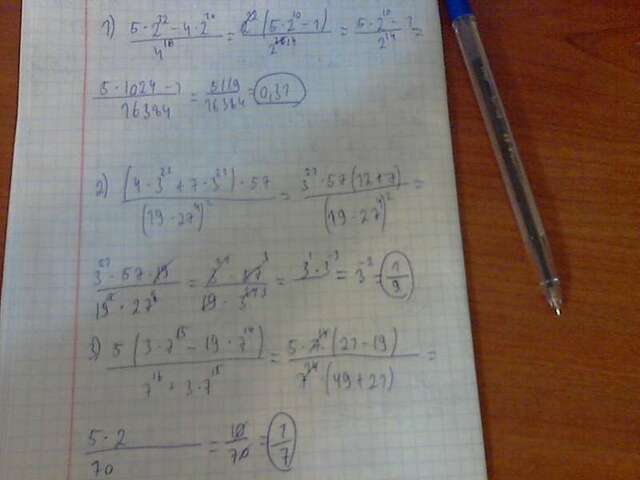 1) (5·2^32 - 4·2^20)/4^18 = 2^22(5·2^10 - 1)/2^14 = (5·2^10 - 1)/2^14 =
(5·1024 - 1)/16384 = 5119/16384 = 0,31
2) (4·3^22 + 7·3^21)·57/(19·27^4)^2 = 3^21·57(12+7)/(19·27^4)^2 =
3^21·57·19/19^2·27^8 = = 3^1·3^-3 = 3^-2 = 1/9
3) 5(3·7^15 - 19·7^14)/7^16 + 3·7^15 = 5·7^14(21-19)/7^14·(49+21) =
5·2/70 = 10/70 = 1/7